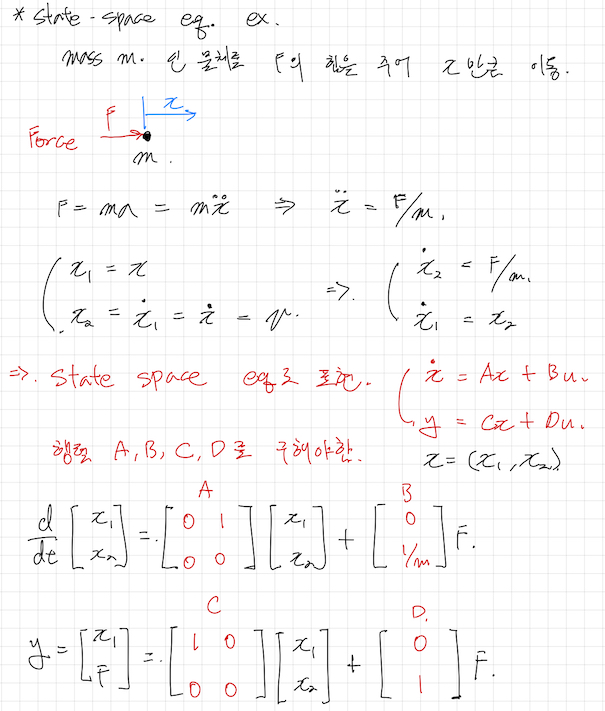 * state-space eq. ex.
mass m. 인 물체를 F의 힘을 주어 x만큼 이동.
Force F x
m.
F = ma = mẍ ⇒ ẍ = F/m.
x₁ = x
x₂ = ẋ₁ = ẋ = v. ⇒. ẋ₂ = F/m.
ẋ₁ = x₂
⇒. state space eq로 표현. ẋ = Ax + Bu.
y = Cx + Du.
행렬 A, B, C, D를 구해야함. x = (x₁, x₂)
A B
d/dt [x₁ x₂] = [0 1 0 0] [x₁ x₂] + [0 1/m] F.
C D.
y = [x₁ F] = [1 0 0 0] [x₁ x₂] + [0 1] F.